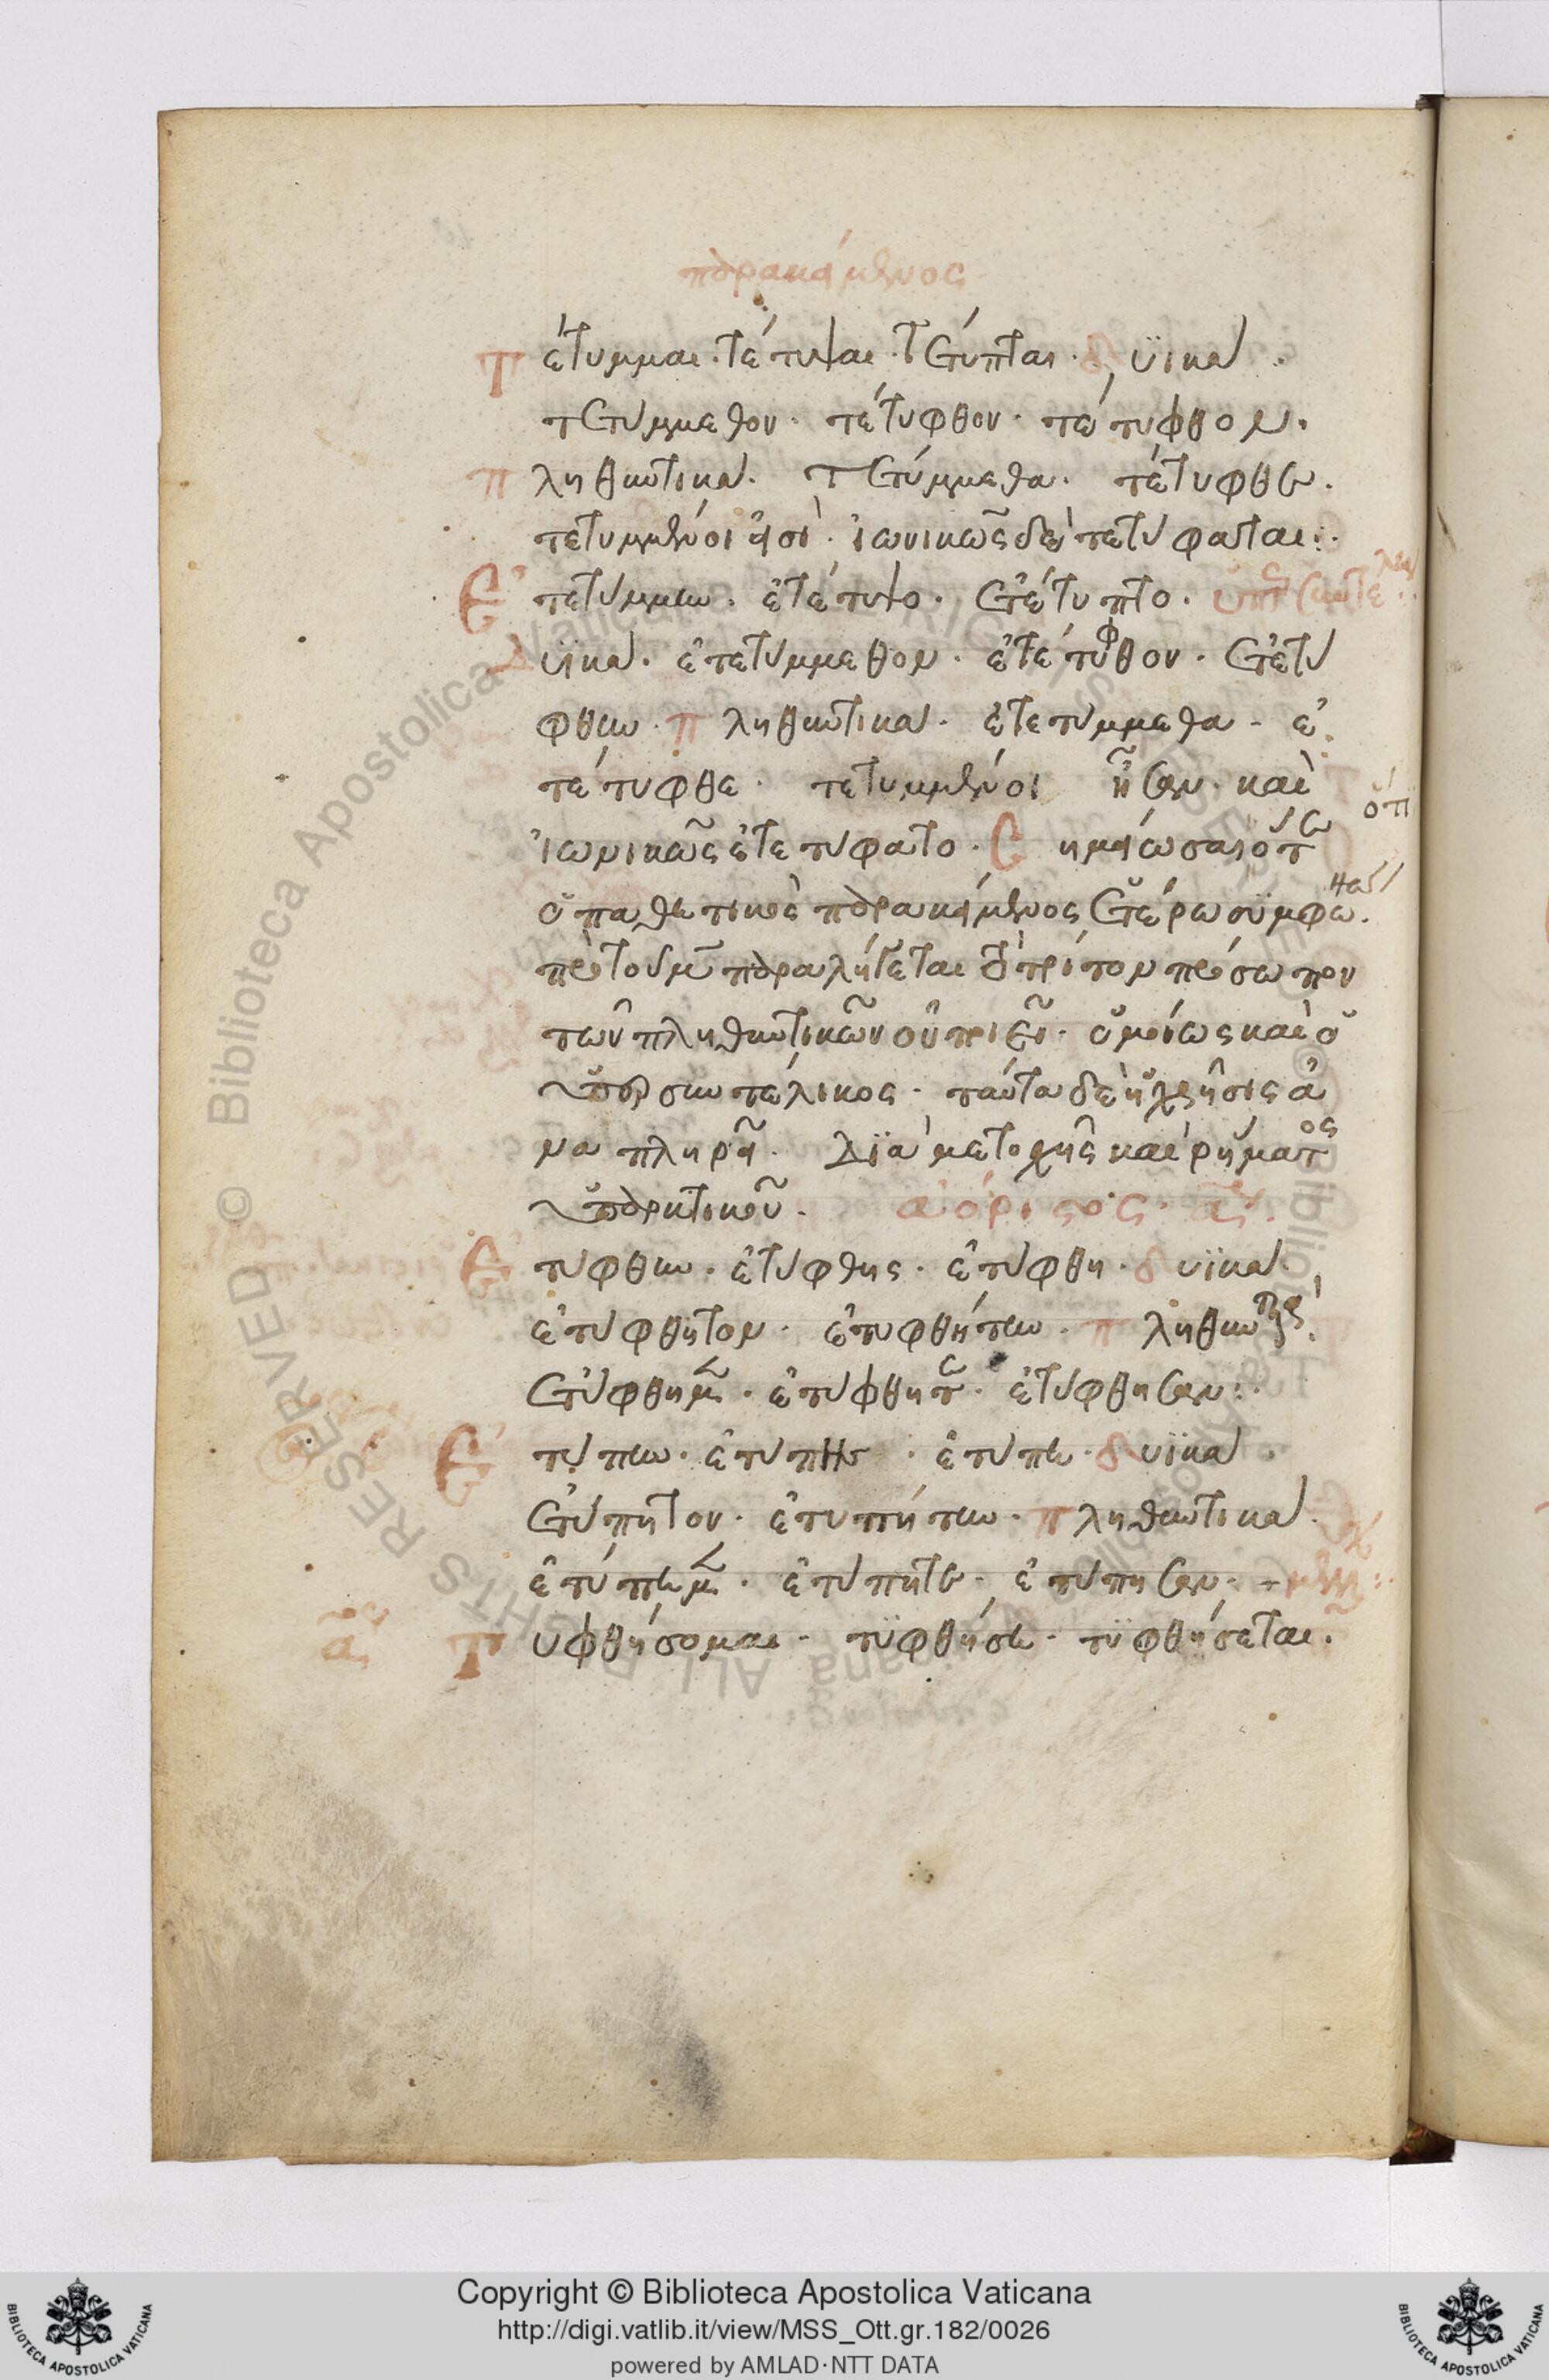 παρακείμενος
Τέτυμμαι. τέτυψαι. τέτυπται. δυϊκά.
τετύμμεθον. τέτυφθον. τέτυφθον.
πληθυντικά. τετύμμεθα. τέτυφθε.
τετυμμένοι εἰσί. ἰωνικῶς δὲ τετύφαται:
Ἐτετύμμην. ἐτέτυψο. ἐτέτυπτο. ὑπερσυντέλικος
Δυϊκά. ἐτετύμμεθον. ἐτέτυφθον. ἐτετύ
φθην. πληθυντικά. ἐτετύμμεθα. ἐ
τέτυφθε. τετυμμένοι ἦσαν. καὶ
ἰωνικῶς ἐτετύφατο. σημείωσαι ὅτε
ὁ παθητικὸς παρακείμενος ἑτέρω συμφώ
πρὸ τοῦ μ παραλήγεται τὸ τρίτον πρόσωπον
τῶν πληθυντικῶν οὐ ποιεῖ. ὁμοίως καὶ ὁ
ὑπερσυντέλικος. ταῦτα δὲ ἡ χρῆσις ἀ
να πληροῖ. Διὰ μετοχῆς καὶ ῥήματος
ὑπαρκτικοῦ. ἀόριστος. α
Ἐτύφθην. ἐτύφθης. ἐτύφθη. δυϊκά.
ἐτύφθητον. ἐτυφθήτην. πληθυντικά.
ἐτύφθημεν. ἐτύφθητε. ἐτύφθησαν:
Ἐτύπην. ἐτύπης. ἐτύπη. δυϊκά.
ἐτύπητον. ἐτυπήτην. πληθυντικά.
ἐτύπημεν. ἐτύπητε. ἐτύπησαν.
Τυφθήσομαι. τυφθήση. τυφθήσεται.
Copyright © Biblioteca Apostolica Vaticana
http://digi.vatlib.it/view/MSS_Ott.gr.182/0026
powered by AMLAD·NTT DATA